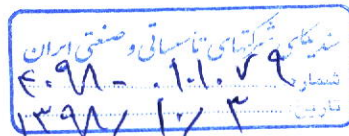 سندیکای شرکتهای تاسیساتی و صنعتی ایران
شماره: ۴۰۹۸-۰۱۰۱۰۷۹
تاریخ: ۱۳۹۸/۱۰/۳